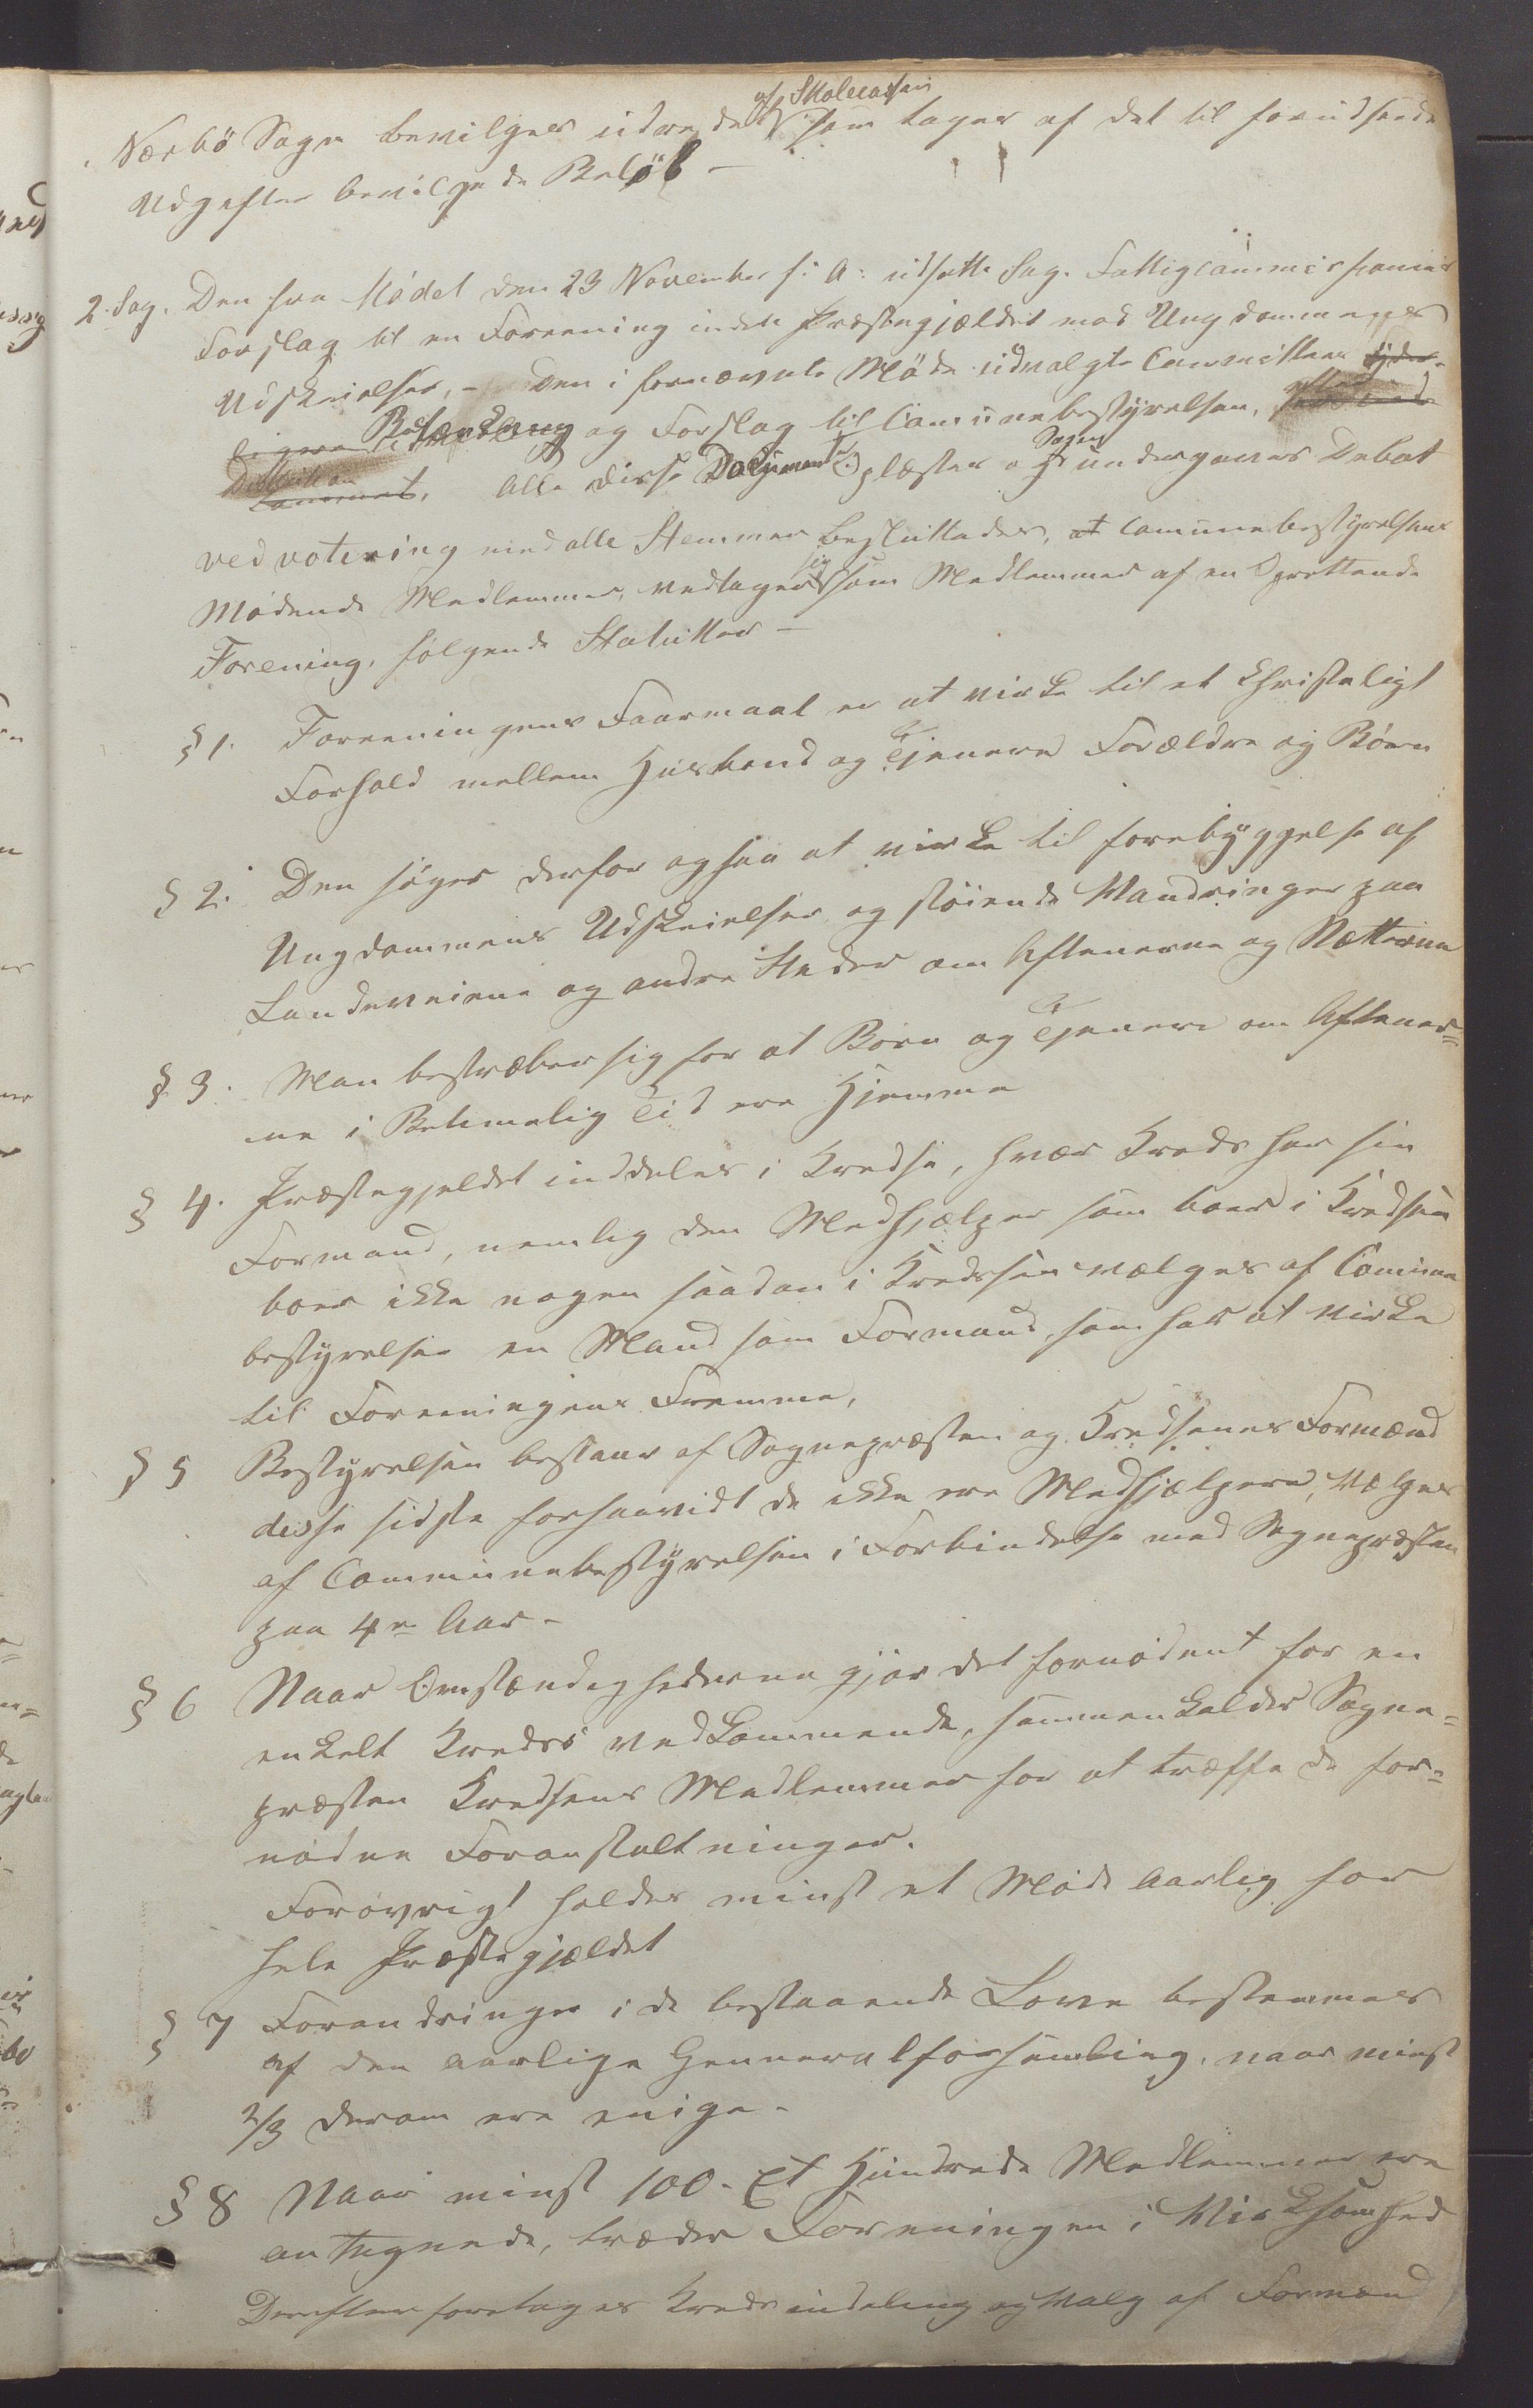 Nærbö Sogn bevilges udredet af Skolecassen som tages af det til forudseede
Udgifter bevilgede Beløb —
2. Sag. Den fra Mödet den 23 November f: A: udsatte Sag. Fattigcommissionens
Forslag til en Foreening inden Præstegjældet mod Ungdommens
Udskeielser, - Den i fornævnte Möde udvalgte Committees
Betænkning og Forslag til Communebestyrelsen,
Alle disse Dokumenter oplæstes og Sagen undergaves Debat
ved votering med alle Stemmer besluttedes, at Communebestyrelsens
Mødende Medlemmer, vedtager sig som Medlemmer af en Oprettende
Forening, følgende Statutter —
§ 1. Foreeningens Foormaal er at virke til et Christeligt
Forhold mellem Husbond og Tjenere Forældre og Börn
§ 2. Den søger derfor ogsaa at virke til forebyggelse af
Ungdommens Udskeielser og støiende Vandringer paa
Landeveiene og andre Steder om Aftenerne og Nætterne
§ 3. Man bestræber sig for at Börn og Tjenere om Aftener=
ne i Betimelig Tid ere Hjemme
§ 4. Præstegjeldet inddeles i Kredse, hver Kreds har sin
Formand, nemlig den Medhjælper som boer i Kredsen
boer ikke nogen saadan i Kredsen vælges af Commune
bestyrelsen en Mand som Formand, som har at virke
til Foreeningens Fremme,
§ 5 Bestyrelsen bestaar af Sognepræsten og Kredsenes Formænd
disse sidste forsaavidt de ikke ere Medhjælpere, Vælges
af Communebestyrelsen i Forbindelse med Sognepræsten
paa 4re Aar -
§ 6 Naar Omstændighederne gjør det fornødent for en
enkelt Kreds vedkommende, sammenkalder Sogne=
præsten Kredsens Medlemmer for at træffe de for=
nødne Foranstaltninger.
Forøvrigt holdes minst et Möde Aarlig for
hele Præstegjældet
§ 7 Forandringer i de bestaaende Love bestemmes
af den aarlige Genneralforsamling, naar minst
2/3 derom ere enige -
§ 8 Naar minst 100 - Et Hundrede Medlemmer ere
antegnede, træder Foreningen i Virksomhed
Derefter foretages Kredsindeling og Valg af Formænd